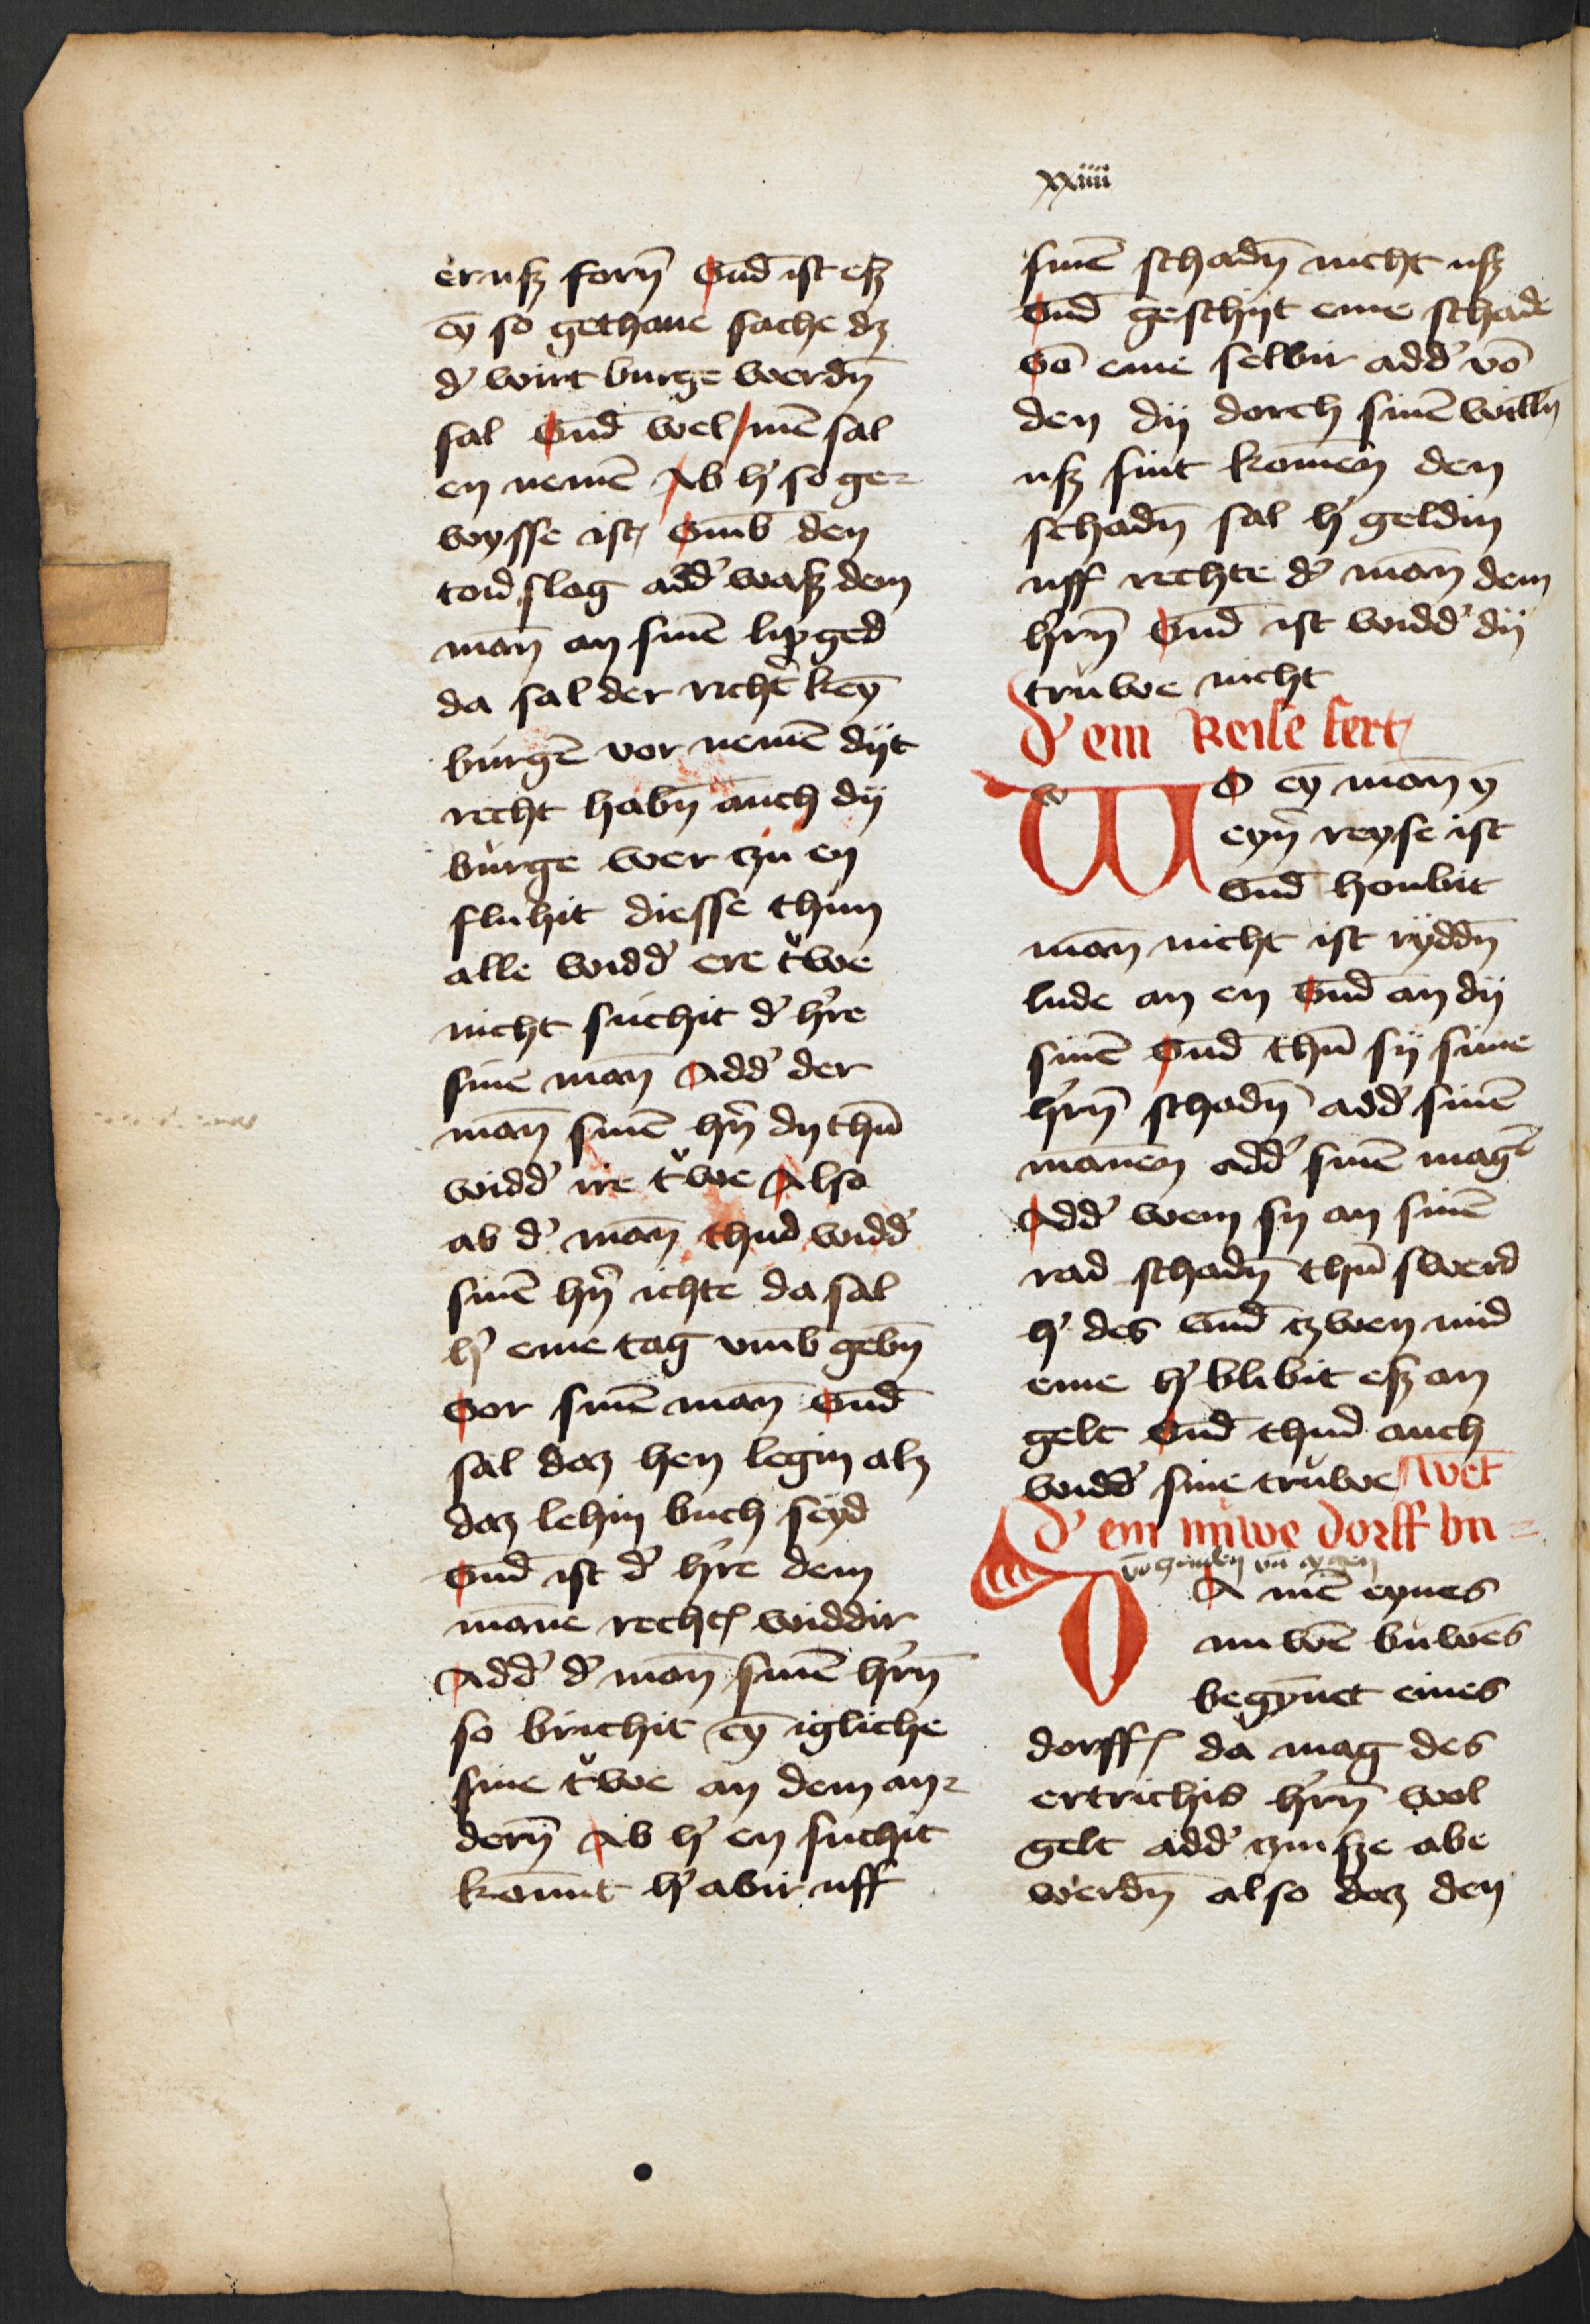 xxiiii
er uſz forn̄ Vnd̄ iſt eſz
eȳ ſo gethane ſache dz
d' wirt burge werdn̄
ſal Vnd̄ wel menͤ ſal
en nemē Ab h' ſo ge-
wyſſe iſt Vmb̄ den
toidſlag add' waſz dem
man̄ an ſinē lip ged
da ſal der richt' keȳ
burgē vor nemē dijt
recht habn̄ auch dij
burge wer czu en
fluhit dieſſe thun
alle widd' ere tͮwe
nicht ſuchit d' h're
ſine man̄ Add' der
man̄ ſinē hn̄ dy thū
widd' ire tͮwe Alſo
ab d' man̄ thud widd'
ſinē hn̄ ichte da ſal
h' eme tag vmb̄ gebn̄
Vor ſinē man̄ Vnd̄
ſal daz hen legin alz
daz lehin buch ſeyd
Vnd̄ iſt d' h're dem
manē recht widdir
Add' d' man̄ ſinē h'rn̄
ſo brichit eȳ igliche
ſine tͮwe an dem an-
dern̄ Ab h' en ſuchit
kommt h' abir uff
ſinē ſchadn̄ nicht uſz
Vnd̄ geſchijt eme ſchade
Vō eme ſelbir add' vō
den dij dorch ſinē willn̄
uſz ſint komen̄ den
ſchadn̄ ſal h' geldin
uff rechte d' man̄ dem
h'rn̄ Vnd̄ iſt widd' dij
truwe nicht
D' ein Reiſe fert
WO eȳ man̄ ȳ
eyn' reyſe iſt
Vnd̄ houbit
man̄ nicht iſt ryddn̄
lude an en Vnd̄ an dij
ſinē Vnd̄ thū ſij ſime
h'rn̄ ſchadn̄ add' ſinē
manen̄ add' ſinē magē
Add' wem ſy an ſinē
rad ſchadn̄ thū ſwerd
h' des Vnd̄ czwen mid
eme h' blibit eſz an
gelt Vnd̄ thud auch
widd' ſine truwe wet
D' ein nuwe dorff bu-
DA mē eynes
nuwē buwes
begȳnet eines
dorff da mag des
ertrichis h'rn̄ wol
gelt add' czinſze abe
werdn̄ alſo daz den